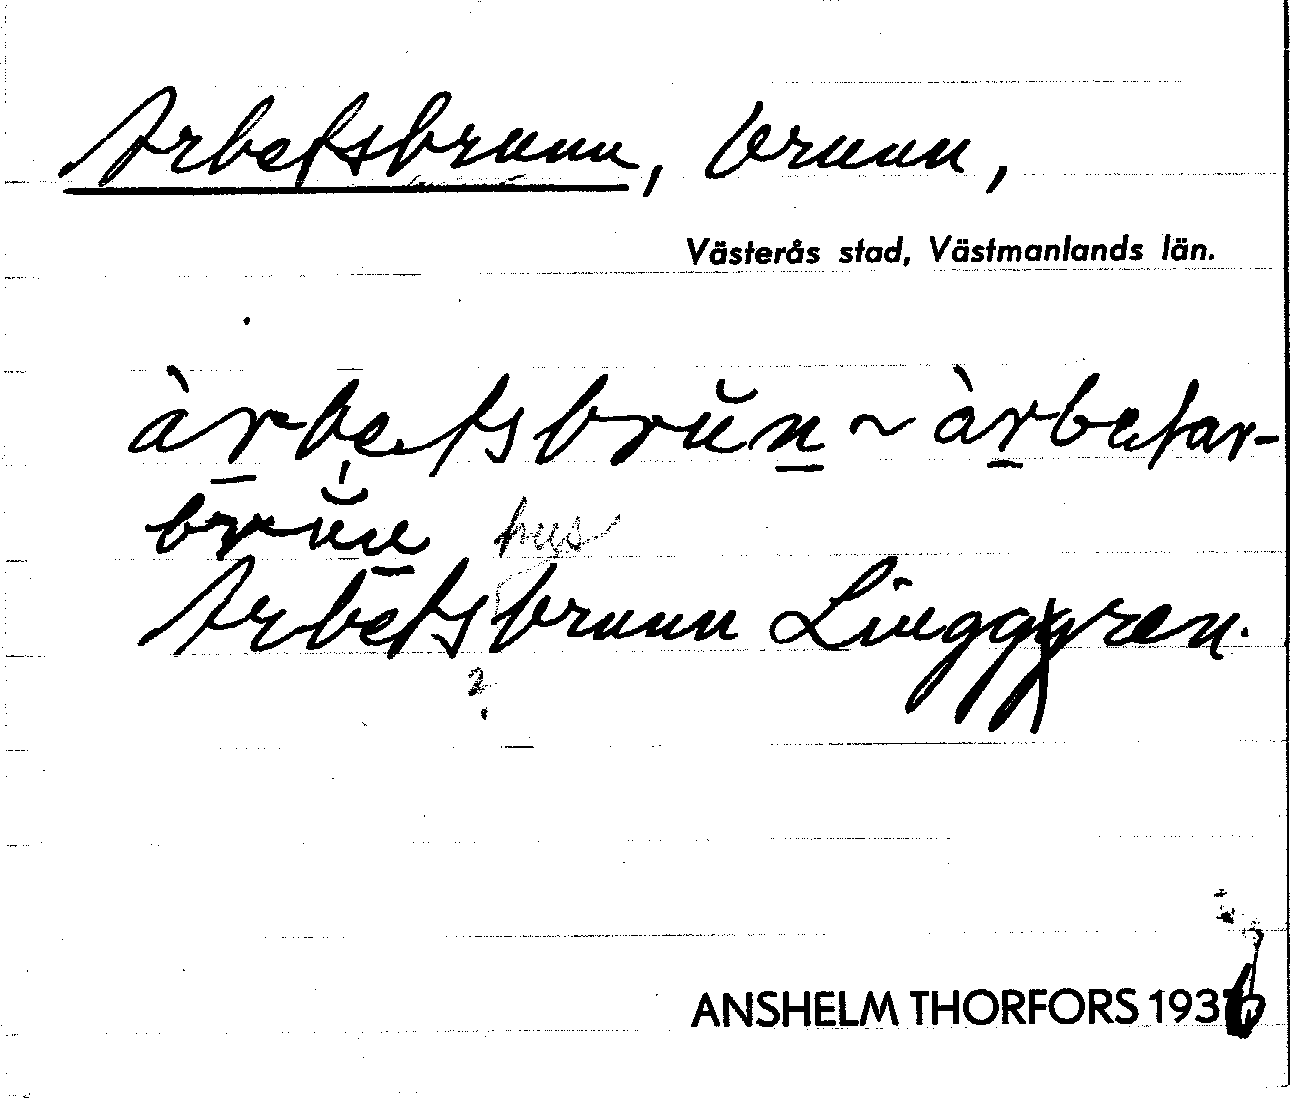 Arbetsbrunn, brunn,
Västerås stad, Västmanlands län.
àrbetsbrŭn ~ àrbetar-
brŭn
hus
Arbetsbrunn Linggren.
?
ANSHELM THORFORS 1936